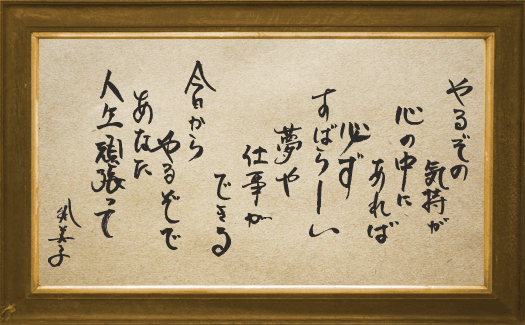 やるぞの
気持が
心の中に
あれば
必ず
すばらしい
夢や
仕事が
できる
今日から
やるぞで
あなた
人生頑張って